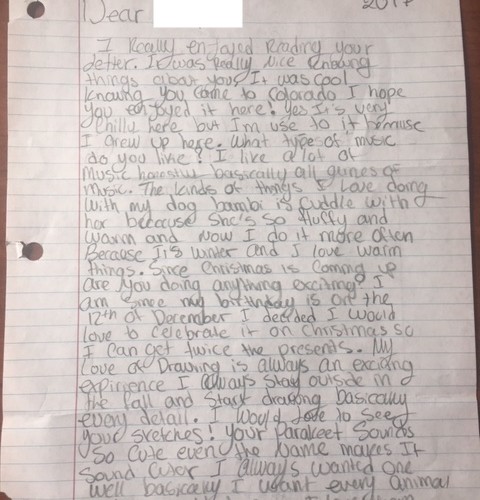 Dear 2017
I Really enjoyed Reading your
letter. It was Really nice knowing
things about you! It was cool
knowing you came to Colorado I hope
you enjoyed it here! Yes It's very
chilly here but I'm use to it because
I grew up here. What types of music
do you like? I like alot of
Music basically all gunes of
music. The kinds of things I Love doing
with my dog bambi is cuddle with
her because She's so fluffy and
warm and Now I do it more often
Because It's winter and I love warm
things. Since Christmas is coming up
are you doing anything exciting? I
am since my birthday is on the
12th of December I decided I would
love to celebrate it on Christmas so
I can get twice the presents. My
Love of Drawing is always an exciting
expirience I always stay outside in
the fall and start drawing basically
every detail. I would love to see
your sketches! Your Parakeet Sounds
So cute even the Name makes It
Sound cuter I always wanted one
well basically I want every animal